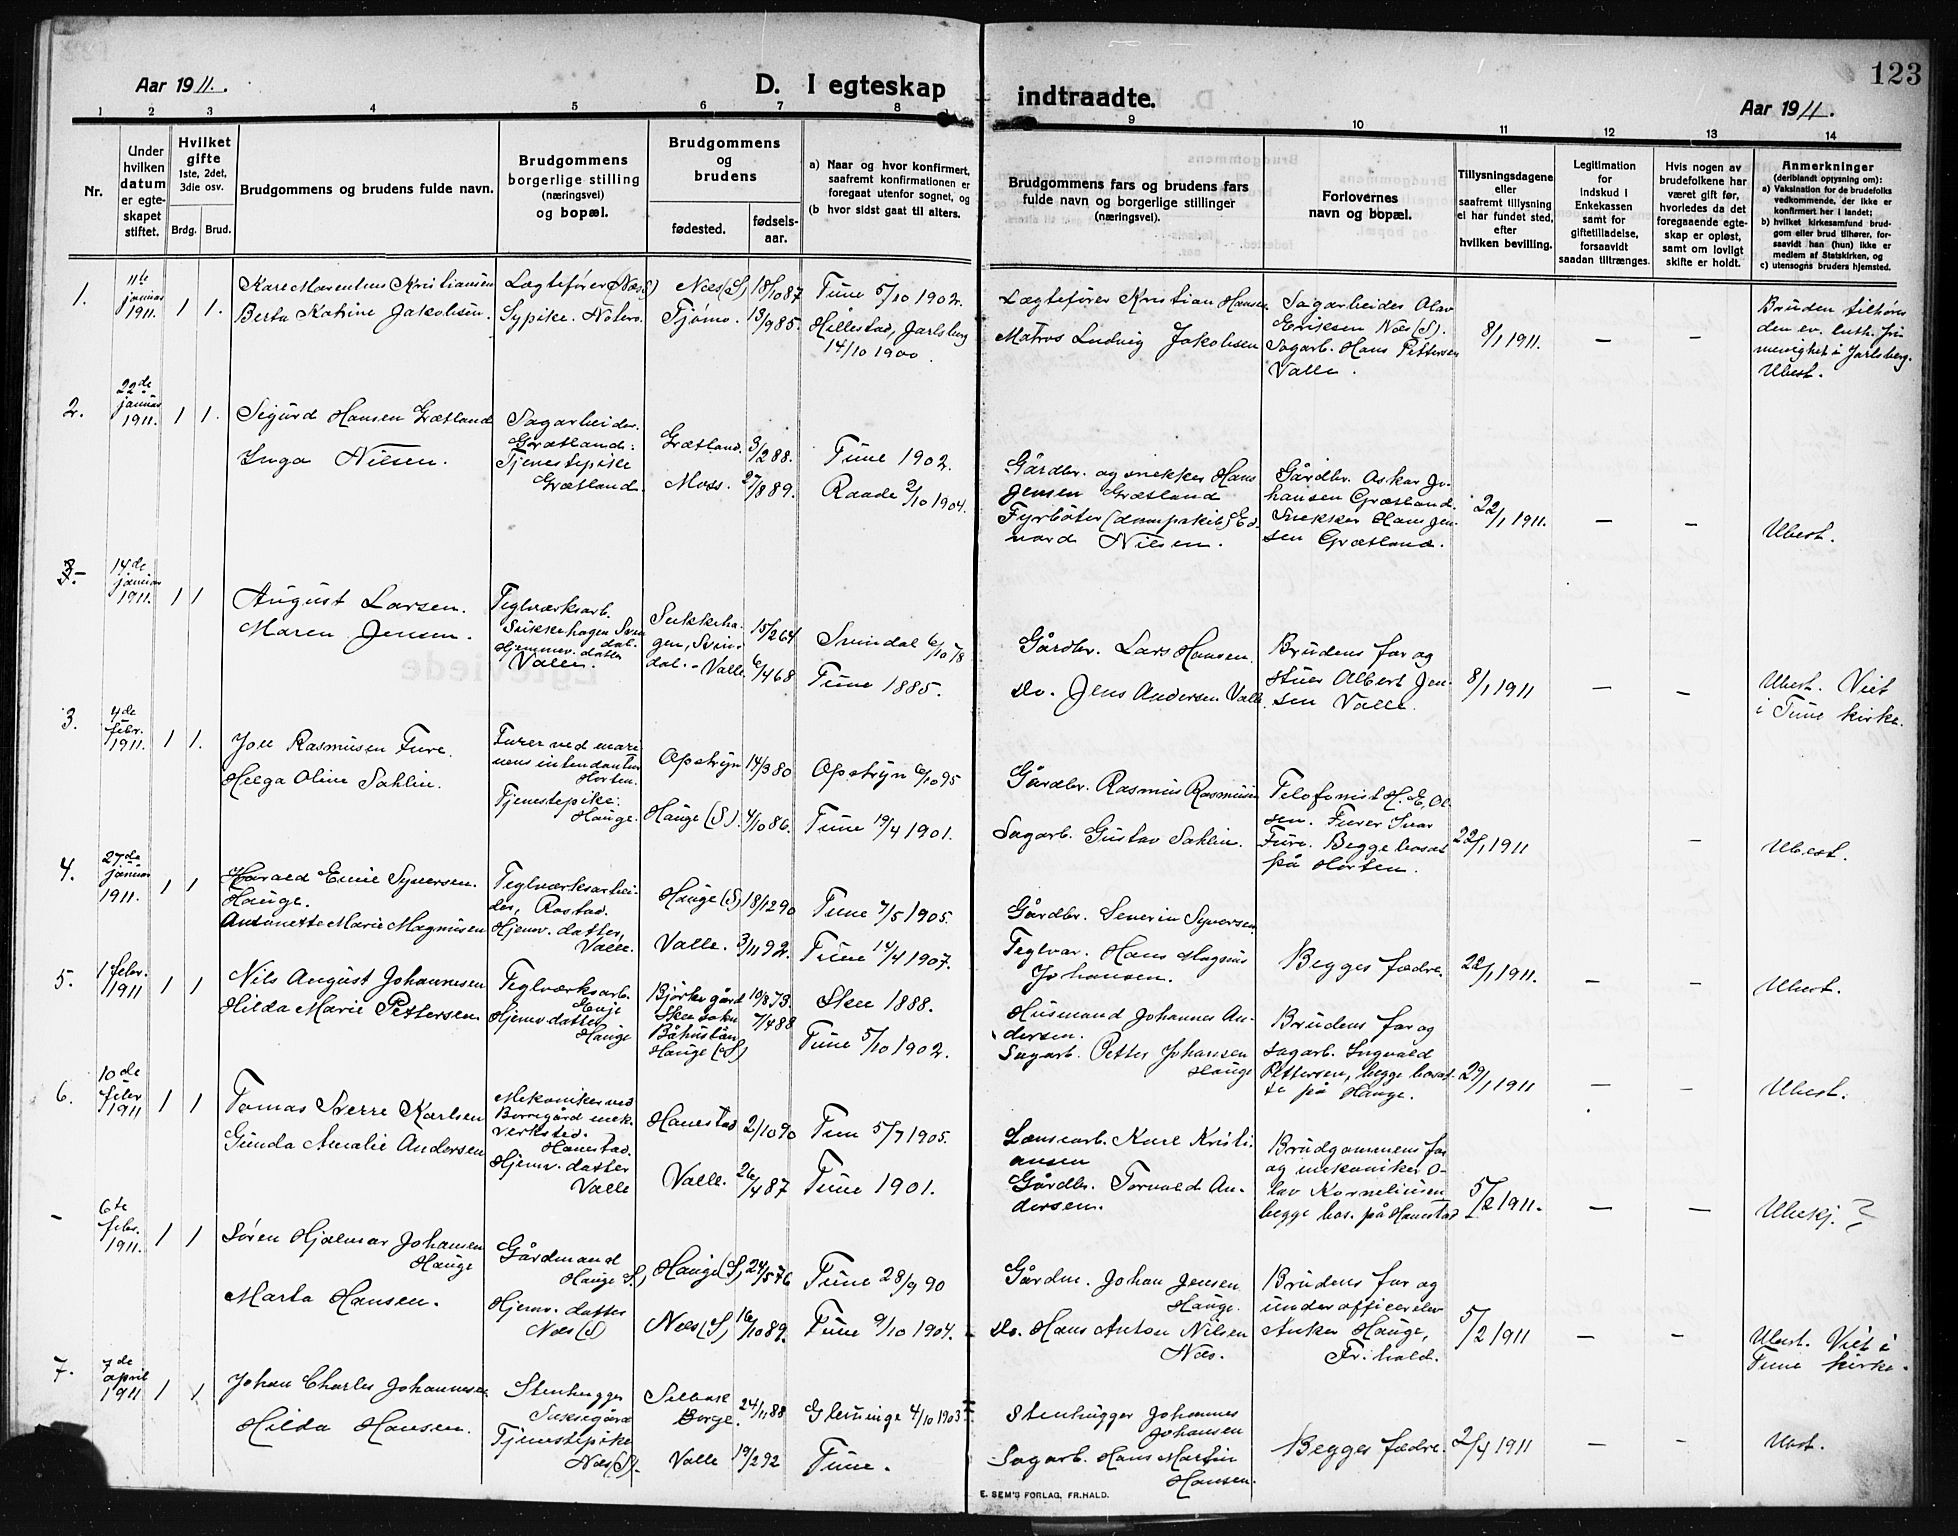 123
Aar 1911.
D. I egteskap
indtraadte.
Aar 1911.
1 2 3 4 5 6 7 8 9 10 11 12 13 14
Nr.
Under hvilken datum er egteskapet stiftet.
Hvilket gifte 1ste, 2det, 3die osv.
Brdg. Brud.
Brudgommens og brudens fulde navn.
Brudgommens borgerlige stilling (næringsvei) og bopæl.
Brudgommens og brudens
fødested.
fødselsaar.
a) Naar og hvor konfirmert, saafremt konfirmationen er foregaat utenfor sognet, og
(b hvor sidst gaat til alters.
Brudgommens fars og brudens fars fulde navn og borgerlige stillinger (næringsvei).
Forlovernes navn og bopæl.
Tillysningsdagene eller saafremt tillysning ei har fundet sted, efter hvilken bevilling.
Legitimation for indskud i Enkekassen samt for giftetilladelse, forsaavidt saadan tiltrænges.
Hvis nogen av brudefolkene har været gift før, hvorledes da det foregaaende egteskap er opløst, samt om lovligt skifte er holdt.
Anmerkninger (deriblandt oplysning om):
a) Vaksination for de brudefolks vedkommende, der ikke er konfirmert her i landet;
b) hvilket kirkesamfund brudgom eller brud tilhører, forsaavidt han (hun) ikke er medlem af Statskirken, og
c) utensogns bruders hjemsted.
1.
11te januar 1911.
1 1.
Kare Marentius Kristiansen
Berta Katrine Jakobsen.
Lægtefører (Næs S)
Sypike. Nötero.
Næs (S) 18/10 87
Tjømo. 13/9 85.
Tune 5/10 1902.
Hillestad, Jarlsberg
14/10 1900.
Lægtefører Kristian Hansen
Matros Ludvig Jakobsen
Sagarbeider Olav
Eriksen Næs (S).
Sagarb. Hans Pettersen
Valle.
8/1 1911.
—
—
Bruden tilhøres
den ev. luth. frimenighet i Jarlsberg.
Ubest.
2.
22de januar 1911.
1 1.
Sigurd Hansen Grætland
Inga Nilsen.
Sagarbeider.
Grætland.
Tjenestepike
Grætland.
Grætland. 3/2 88.
Moss. 27/8 89.
Tune 1902.
Raade 2/10 1904.
Gårdbr. og snekker Hans
Jensen Grætland
Fyrbøter (dampskib) Edvard Nilsen.
Gårdbr. Oskar Johansen Grætland.
Snekker Hans Jensen Grætland.
22/1 1911.
—
—
Ubest.
3.-
14de januar 1911.
1 1
August Larsen.
Maren Jensen.
Teglværksarb.
Sukkehagen Svindal.
Hjemmev. datter
Valle.
Sukkehagen, Svindal. 15/2 64
Valle 6/4 68
Svindal 6/10 78
Tune 1885.
Gårdbr. Lars Hansen.
do. Jens Andersen Valle.
Brudens far og
Stuer Albert Jensen Valle.
8/1 1911
—
—
Ubest. Viet
i Tune kirke.
3.
4de febr. 1911.
1 1.
Joll Rasmusen Fure.
Helga Oline Sahlin.
Furer ved marinens intendantur
Horten.
Tjenestepike.
Hauge.
Opstryn 14/3 80
Hauge (S). 4/10 86.
Opstryn 6/10 95
Tune 19/4 1901.
Gårdbr. Rasmus Rasmusen
Sagarb. Gustav Sahlin.
Telefonist H. E. Olsen. Furer Ivar
Fure. Begge bosat
på Horten.
22/1 1911
—
Ubest.
4.
27de januar 1911.
1 1
Harald Emil Syversen.
Hauge.
Antonette Marie Magnusen
Teglværksarbeider, Rostad.
Hjemv. datter,
Valle.
Hauge (S) 18/12 90
Valle. 3/11 92.
Tune 7/5 1905.
Tune 14/4 1907.
Gårdbr. Severin Syversen.
Teglvar. Hans Magnus
Johansen.
Begges fædre.
22/1 1911.
—
—
Ubest.
5.
1 febr. 1911
1 1
Nils August Johannesen
Hilda Marie Pettersen
Teglværksarb.
Enje
Hjemv. datter
Hauge
Bjørke gård
Skee sokn
Båhuslän 19/8 73.
Hauge (S) 7/4 88
Skee 1888.
Tune 5/10 1902.
Husmand Johannes Andersen.
Sagarb. Petter Johansen
Hauge
Brudens far og
sagarb. Ingvald
Pettersen, begge bosatte på Hauge.
29/1 1911
—
—
Ubest.
6.
10de febr 1911
1 1
Tomas Sverre Karlsen
Gunda Amalie Andersen
Mekoniker ved
Borregård mek.
verksted.
Hanestad.
Hjemv. datter
Valle
Hanestad 2/10 90
Valle. 26/4 87
Tune 5/7 1905.
Tune 1901.
Lænsearb. Karl Kristiansen
Gårdbr. Torvald Andersen.
Brudgommens far
og mekoniker Olav Korneliusen
begge bos. på Hanestad
5/2 1911.
—
—
Ubekj. ?
-
6te febr. 1911.
1 1
Søren Hjalmar Johansen
Hauge
Marta Hansen.
Gårdmand
Hauge S.
Hjemv. datter
Næs (S)
Hauge (S) 24/5 76
Næs (S) 16/10 89.
Tune 28/9 90
Tune 9/10 1904.
Gårdm. Johan Jensen
Hauge.
do. Hans Anton Nilsen
Næs.
Brudens far og
underofficerelev
Anker Hauge,
Fr. hald.
5/2 1911
—
—
Ubest. Viet i
Tune kirke.
7.
7de april 1911
1 1
Johan Charles Johannesen
Hilda Hansen.
Stenhugger
Tjenestepike
Næs (S).
Selbak
Borge. 24/11 88
Valle 19/2 92
Glemminge 4/10 1903
Tune.
Stenhugger Johannes
Johansen
Sagarb. Hans Martin
Hansen.
Begges fædre.
2/4 1911
—
—
Ubst.
E. SEM'S FORLAG, FR.HALD.